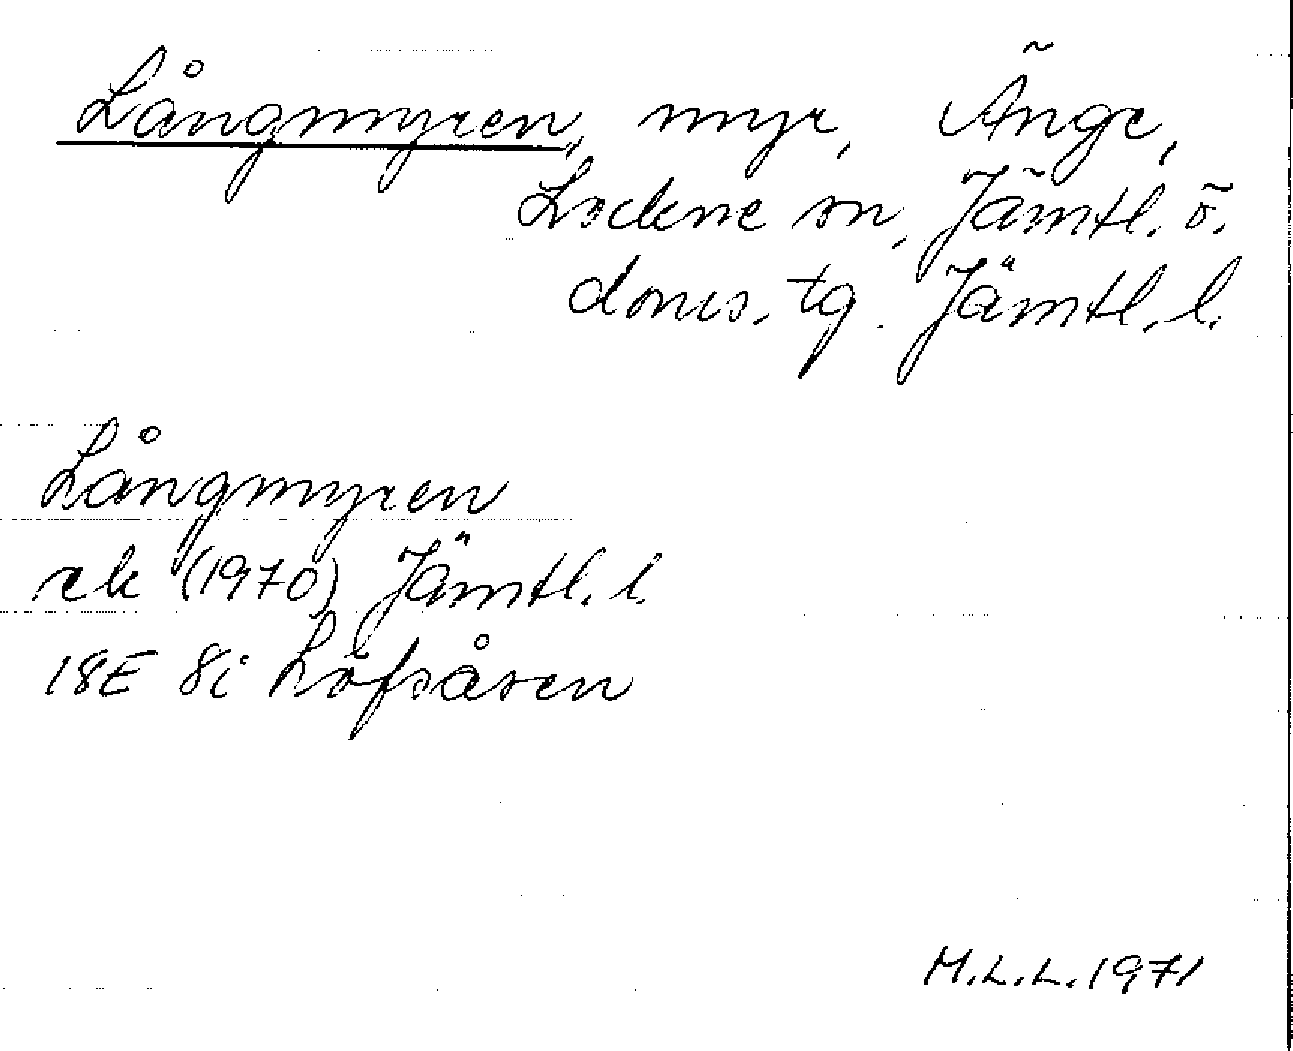 Långmyren, myr, Änge,
Lockne sn, Jämtl. ö.
doms. tg. Jämtl. l.
Långmyren
ek (1970) Jämtl. l.
18E 8i Löfsåsen
M.L.L. 1971